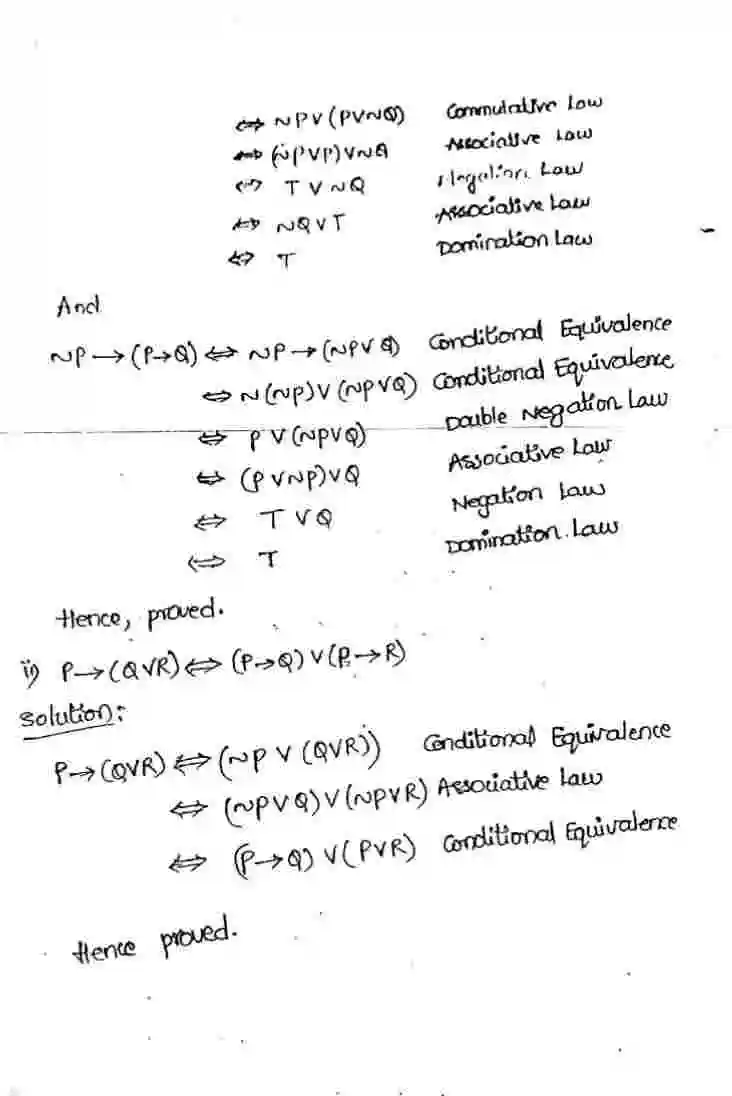 ⇔ ~P∨(P∨~Q) Commutative Law
⇔ (~P∨P)∨~Q Associative Law
⇔ T ∨ ~Q Negation Law
⇔ ~Q∨T Associative Law
⇔ T Domination Law
And
~P→(P→Q) ⇔ ~P→(~P∨Q) Conditional Equivalence
⇔ ~(~P)∨(~P∨Q) Conditional Equivalence
⇔ P∨(~P∨Q) Double Negation Law
⇔ (P∨~P)∨Q Associative Law
⇔ T∨Q Negation Law
⇔ T Domination Law
Hence, proved.
ii) P→(Q∨R)⇔(P→Q)∨(P→R)
Solution:
P→(Q∨R)⇔(~P∨(Q∨R)) Conditional Equivalence
⇔ (~P∨Q)∨(~P∨R) Associative Law
⇔ (P→Q)∨(P∨R) Conditional Equivalence
Hence proved.